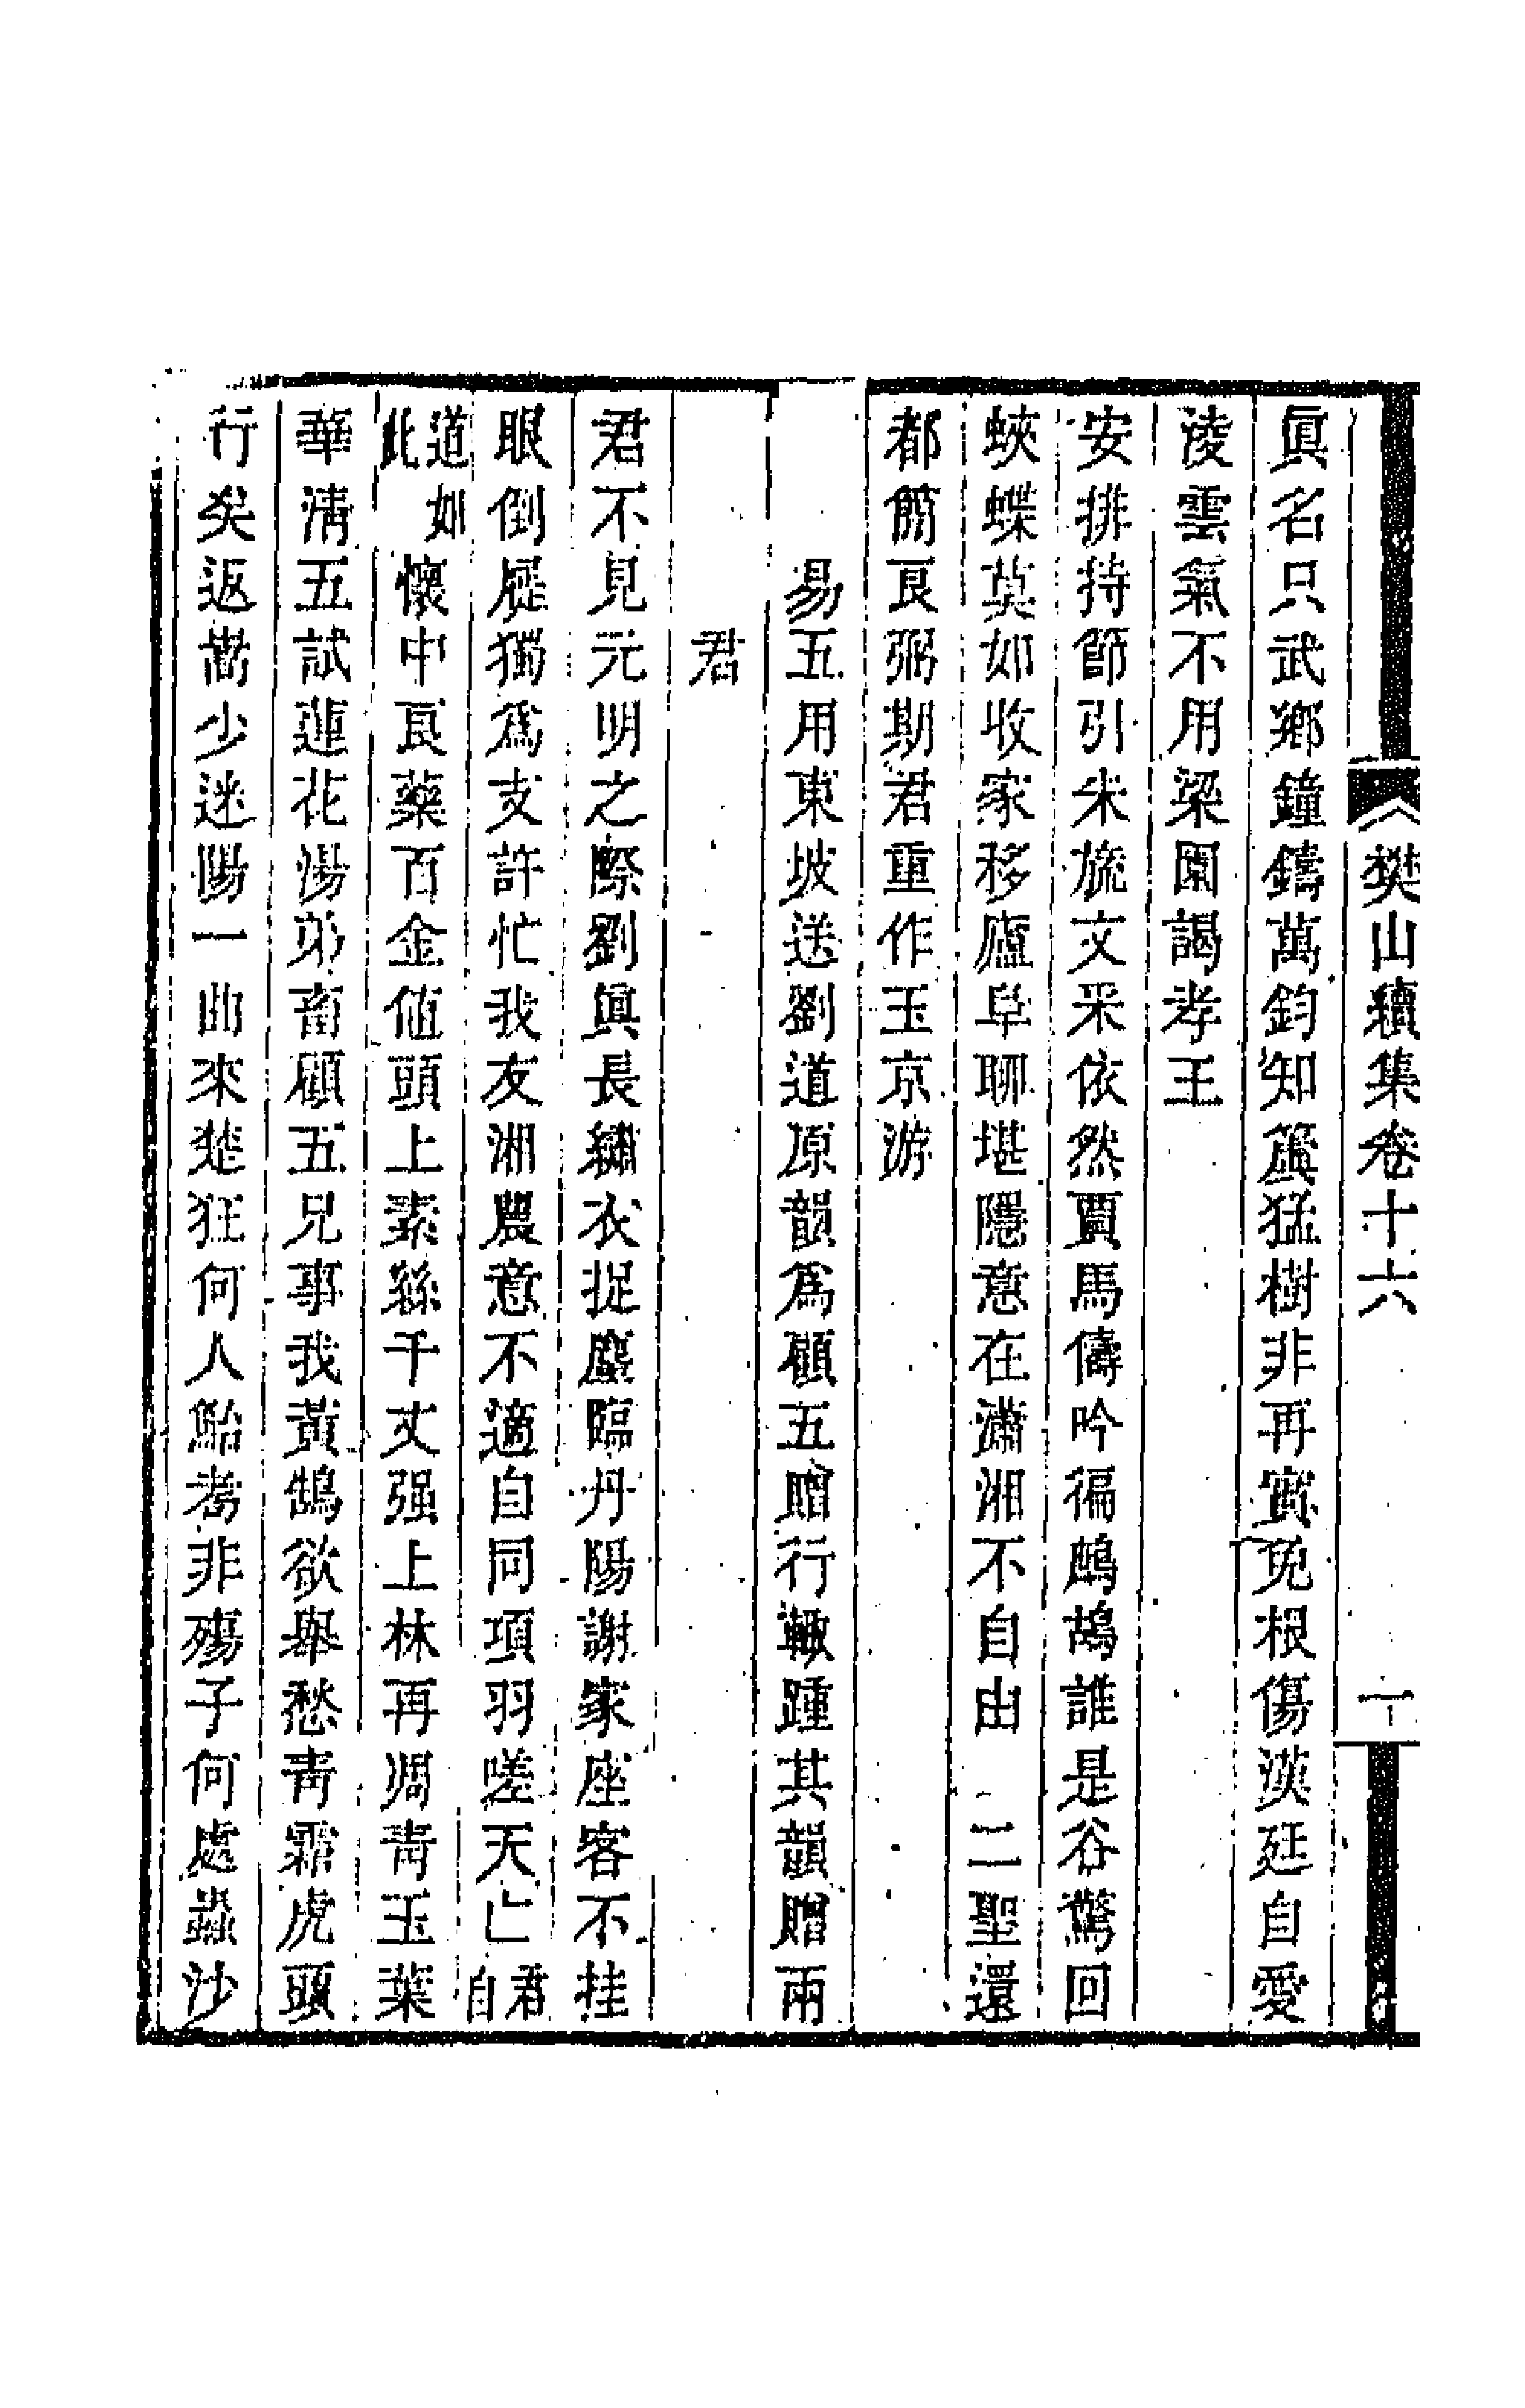 樊山續集卷十六 一
眞名只武鄉鐘鑄萬鈞知簴猛樹非再實免根傷漢廷自愛
淩雲氣不用梁園謁孝王
安排持節引朱旒文采依然賈馬儔吟徧鷓鴣誰是谷驚回
蛺蝶莫如收家移廬阜聊堪隱意在瀟湘不自由 二聖還
都簡良弼期君重作玉京游
易五用東坡送劉道原韻爲顧五贈行輒踵其韻贈兩
君
君不見元明之際劉眞長繡衣捉麈臨丹陽謝家座客不挂
眼倒屣獨爲支許忙我友湘農意不適自同項羽嗟天亡君自
道如此懷中良藥百金值頭上素絲千丈强上林再凋靑玉葉
華淸五試蓮花湯弟畜顧五兄事我黃鵠欲舉愁靑霜虎頭
行矣返嵩少迷陽一曲來楚狂何人鮐耇非殤子何處蟲沙